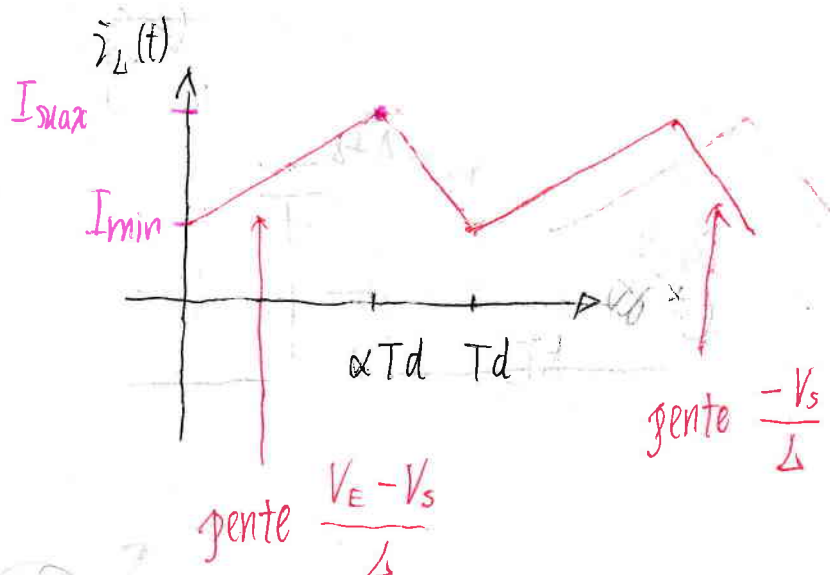 i_L(t)
I_max
I_min
αTd Td
pente -V_S/L
pente V_E - V_S/L